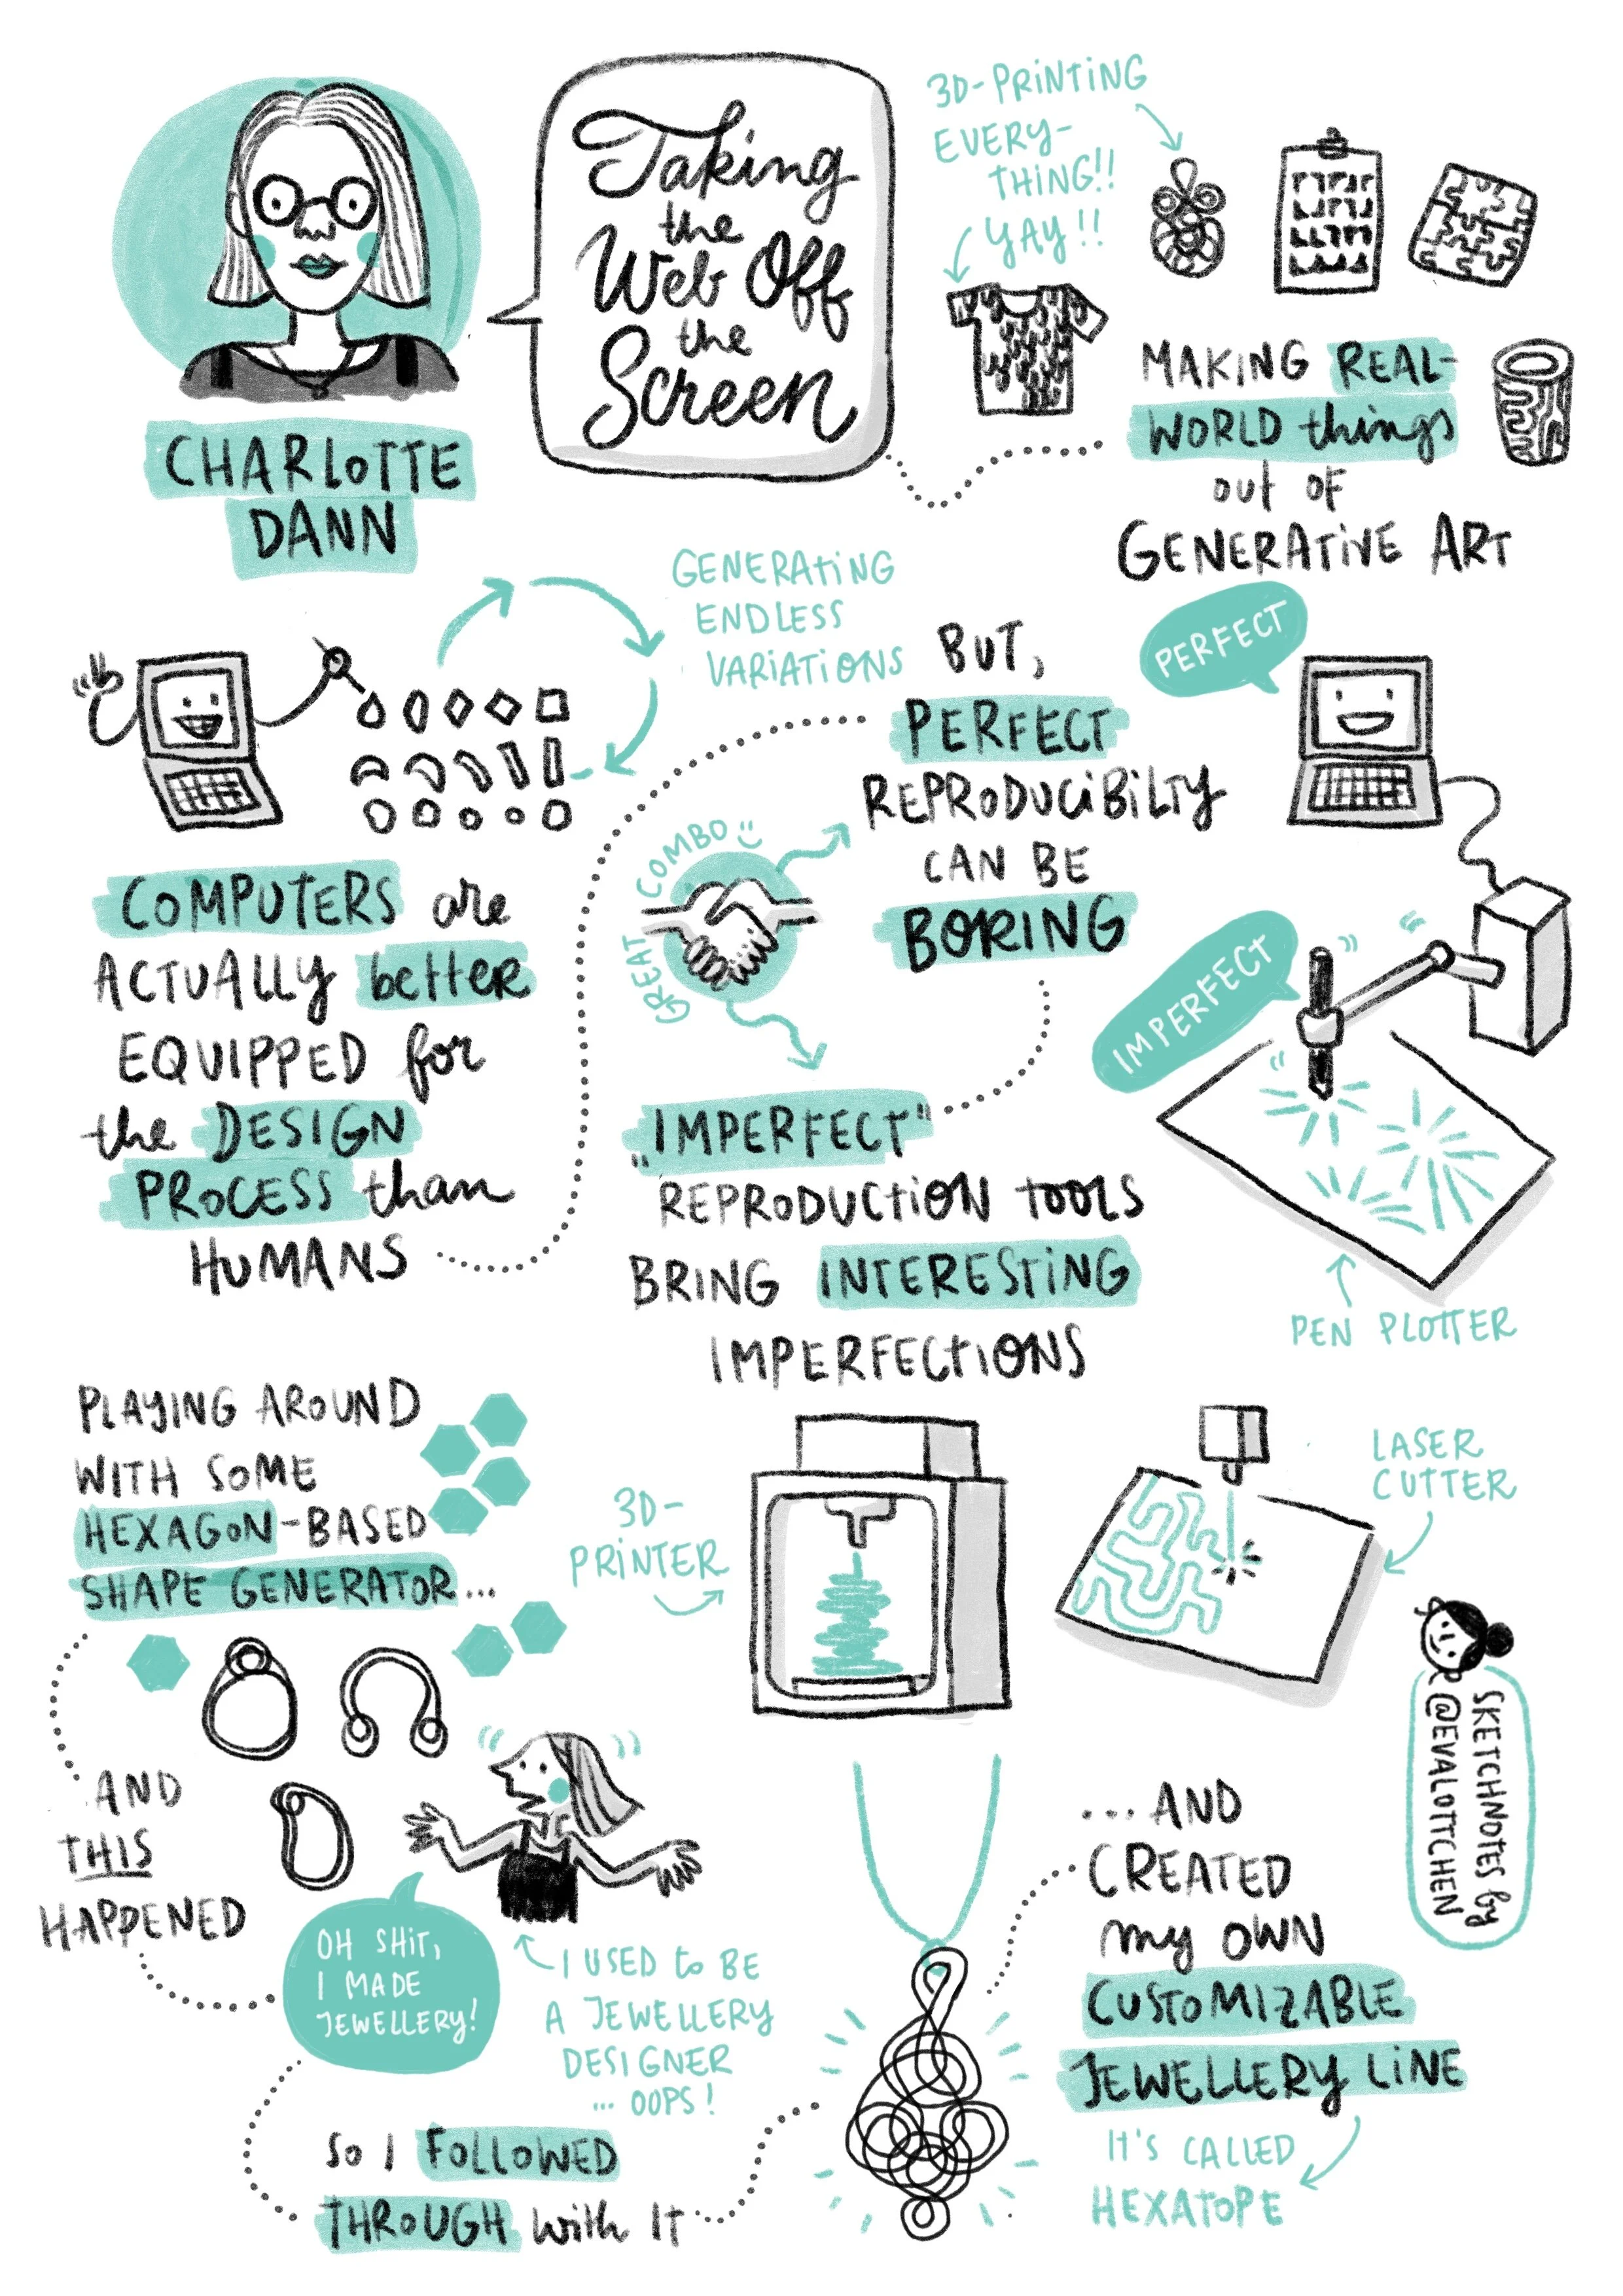 Taking
the
Web Off
the
Screen
CHARLOTTE
DANN
3D-PRINTING
EVERY-
THING!!
YAY!!
MAKING REAL-
WORLD things
out OF
GENERATIVE ART
GENERATING
ENDLESS
VARIATIONS
COMPUTERS are
ACTUALLY better
EQUIPPED for
the DESIGN
PROCESS than
HUMANS
BUT,
PERFECT
REPRODUCIBILTY
CAN BE
BORING
PERFECT
IMPERFECT
GREAT COMBO
"IMPERFECT"
REPRODUCTION TOOLS
BRING INTERESTING
IMPERFECTIONS
PEN PLOTTER
3D-
PRINTER
LASER
CUTTER
PLAYING AROUND
WITH SOME
HEXAGON-BASED
SHAPE GENERATOR...
AND
THIS
HAPPENED
OH SHIT,
I MADE
JEWELLERY!
I USED to BE
A JEWELLERY
DESIGNER
... OOPS!
SO I FOLLOWED
THROUGH with IT
...AND
CREATED
my OWN
CUSTOMIZABLE
JEWELLERY LINE
IT'S CALLED
HEXATOPE
SKETCHNOTES by
@EVALOTTCHEN